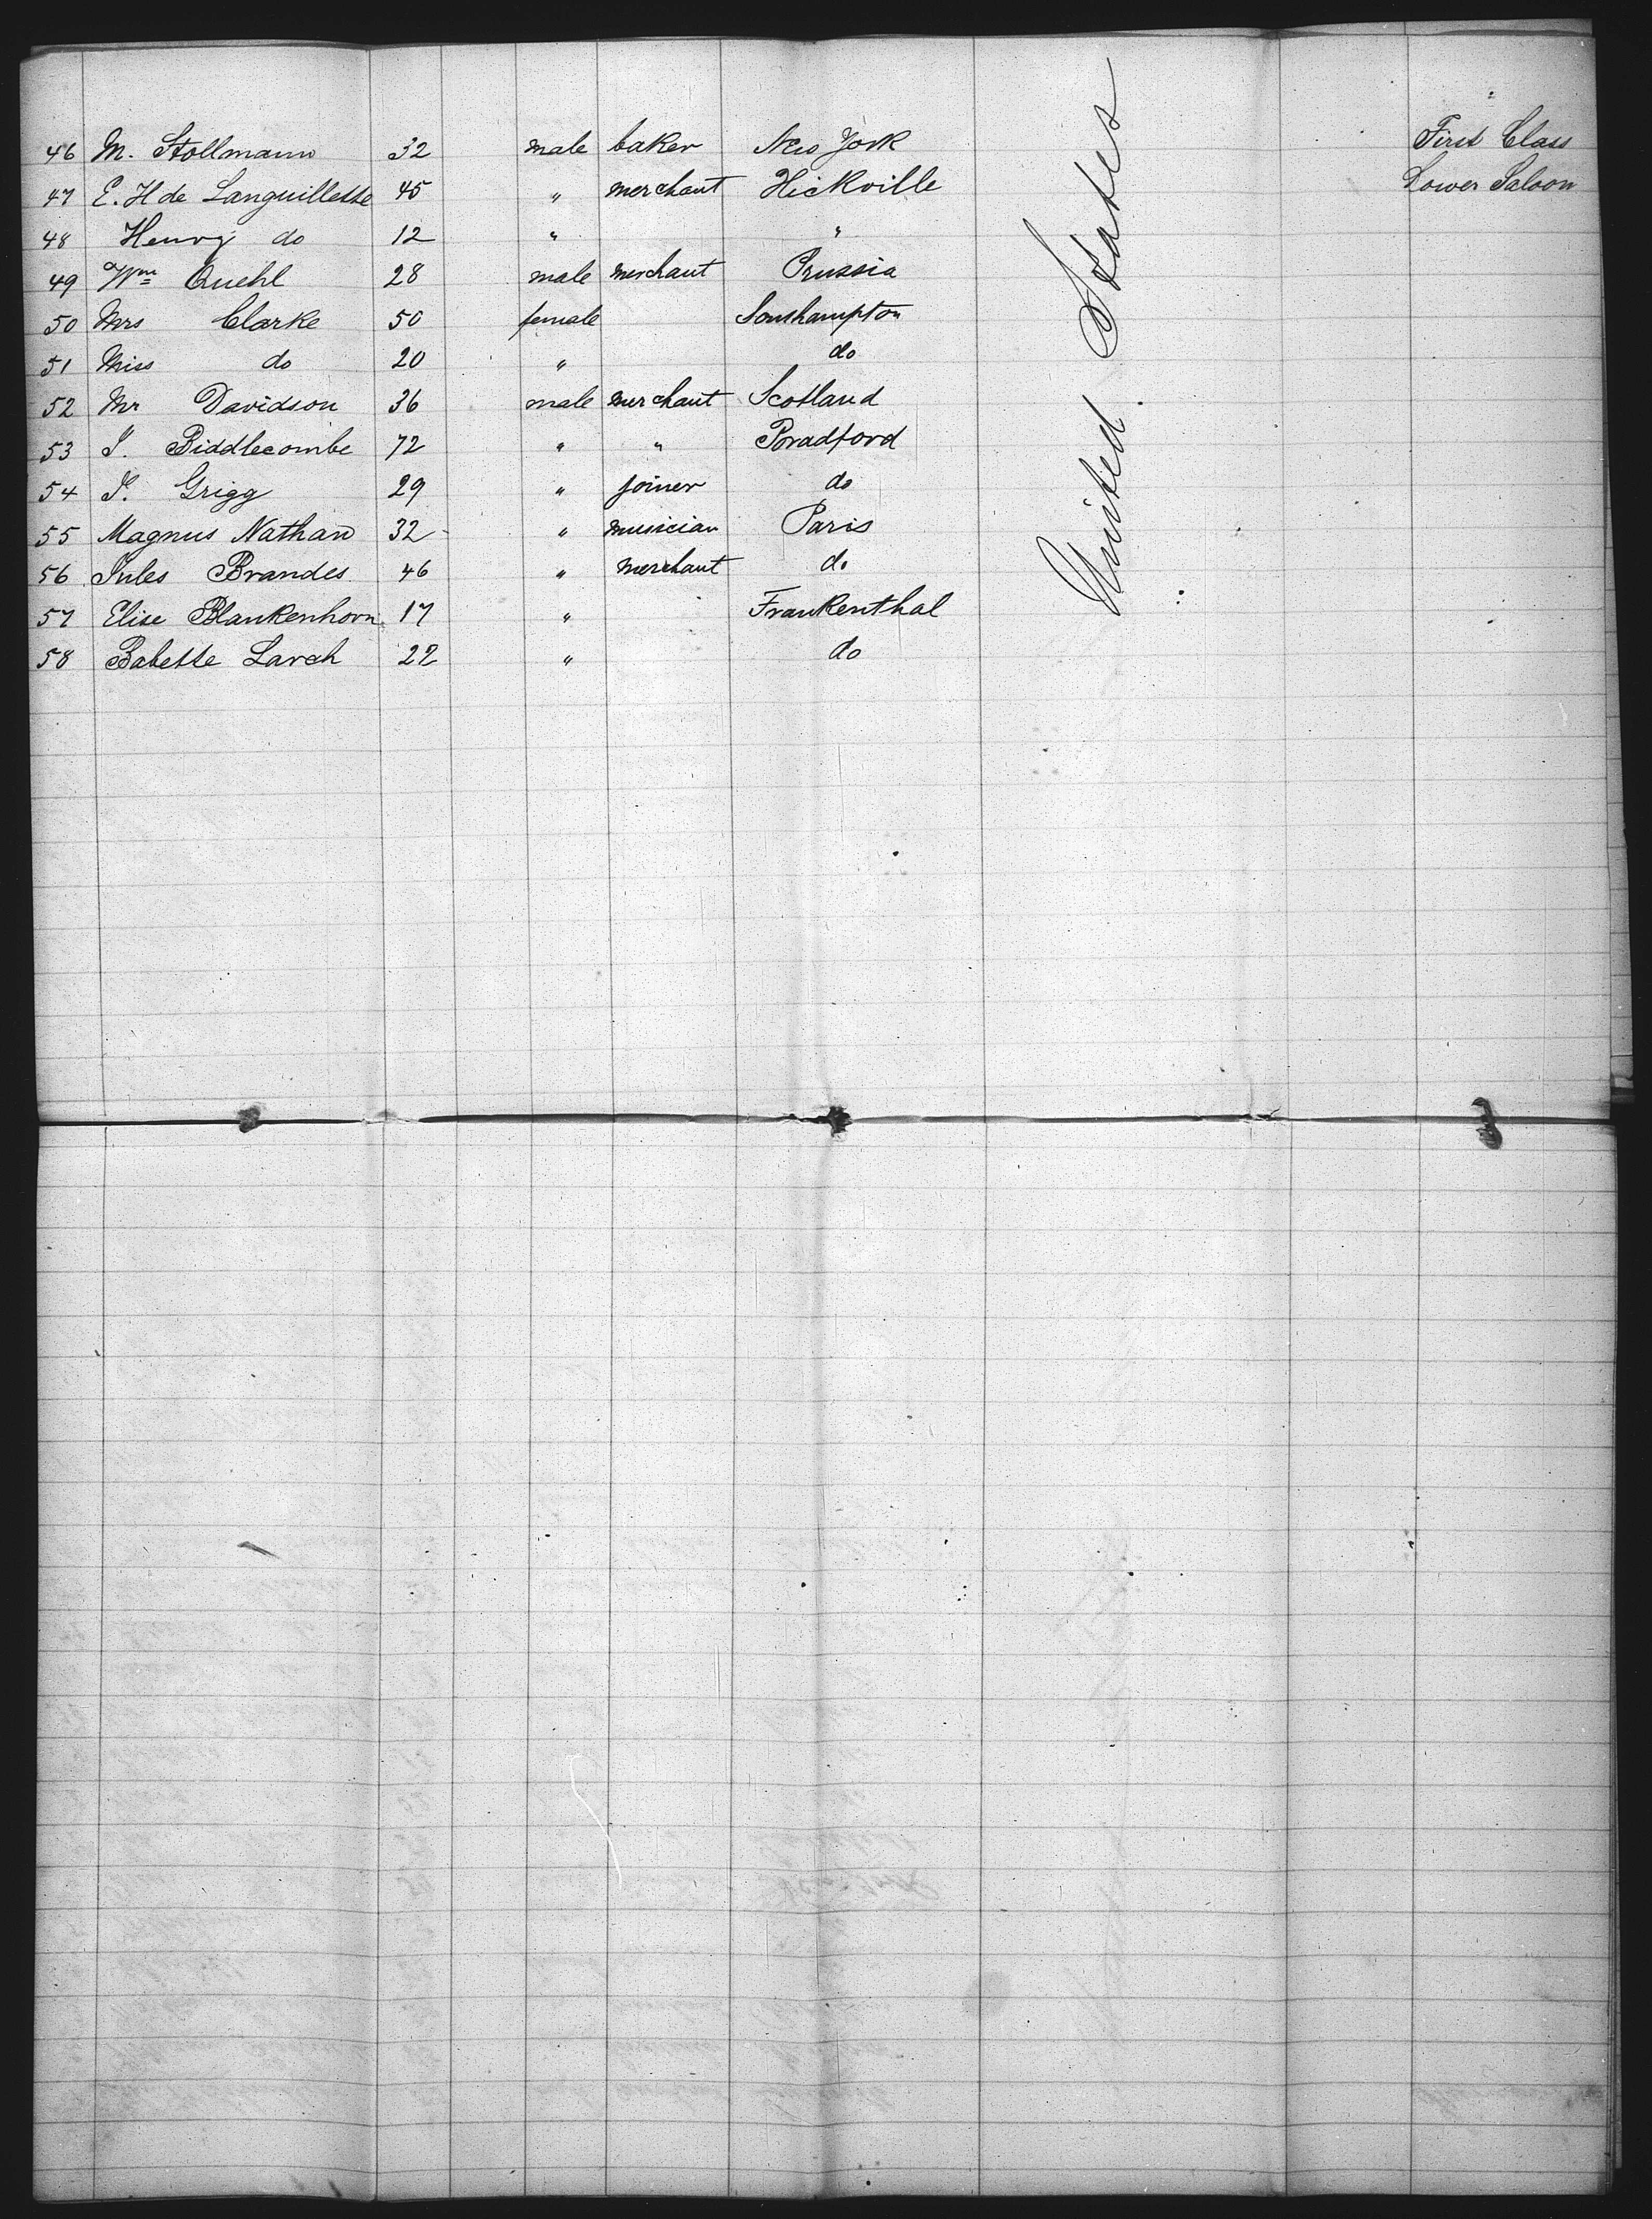 46 M. Stollmann 32 male baker New York First Class
47 E. H de Languillette 45 " merchant Hickville Lower Saloon
48 Henry do 12 " "
49 Wm Quehl 28 male merchant Prussia
50 Mrs Clarke 50 female Southampton
51 Miss do 20 " do
52 Mr Davidson 36 male merchant Scotland
53 J. Biddlecombe 72 " " Bradford
54 J. Grigg 29 " joiner do
55 Magnus Nathan 32 " musician Paris
56 Jules Brandes 46 " merchant do
57 Elise Blankenhorn 17 " Frankenthal
58 Babette Larch 22 " do
United States